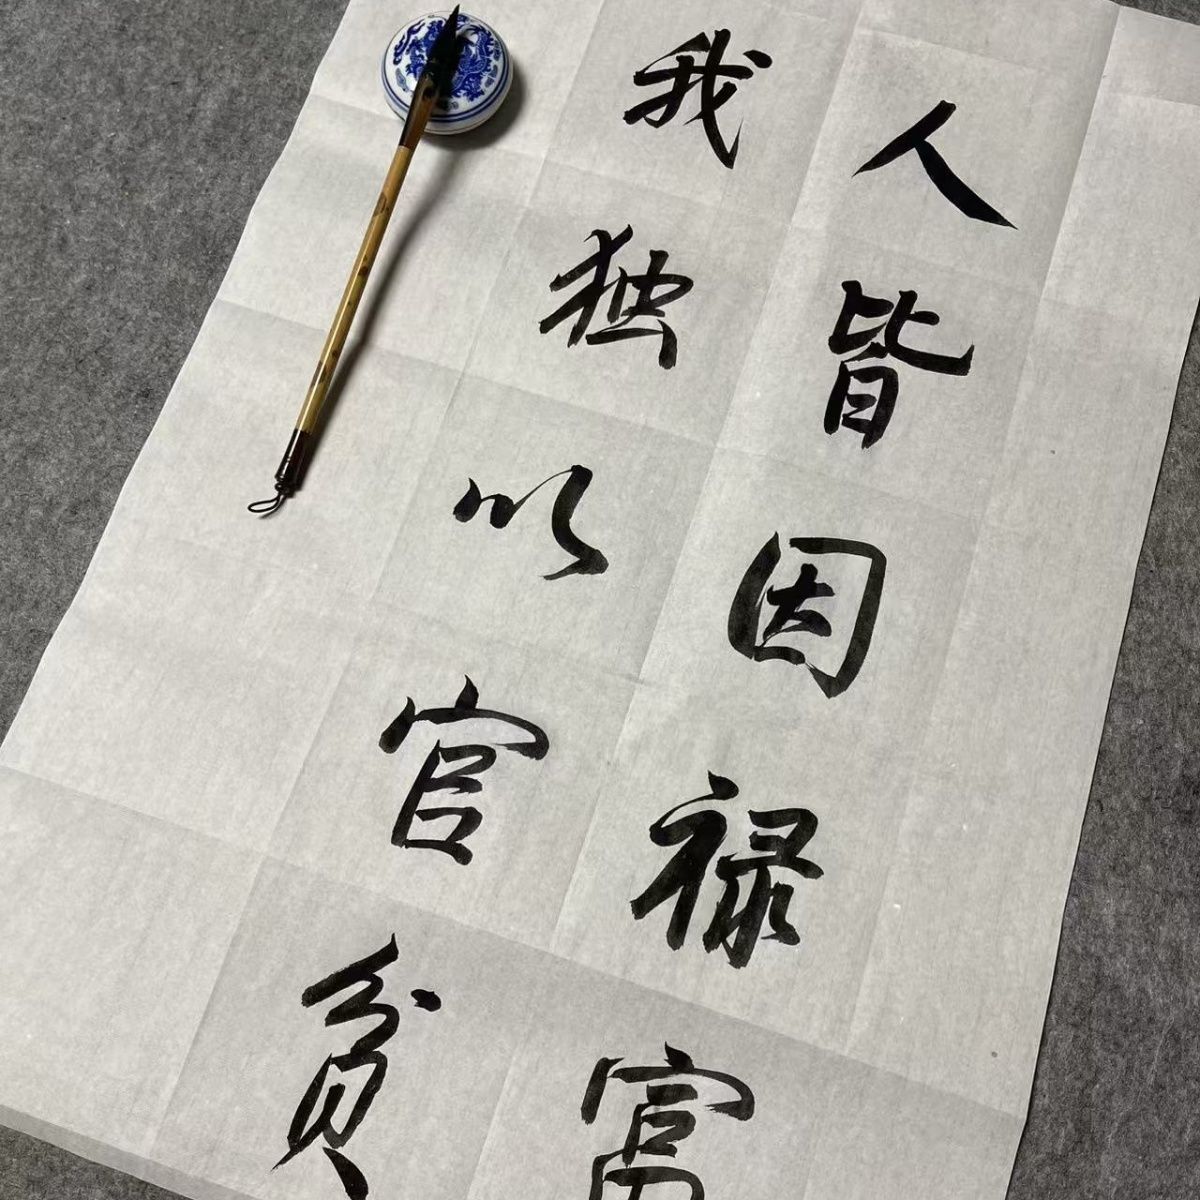 人皆因禄富
我独以官贫